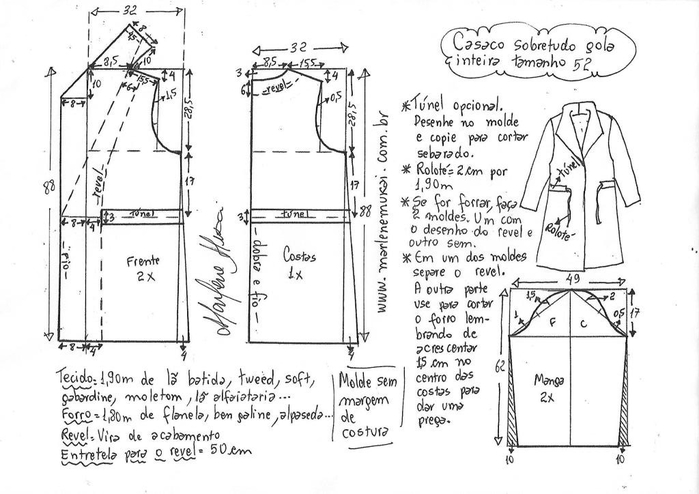 Casaco sobretudo gola
inteira tamanho 52
32
8
15
10
8,5
10
15,5
4
6
1,5
28,5
10
8
revel
88
17
8
4
3
túnel
fio
Frente
2x
8
4
4
Marlene Mukai
32
8,5
15,5
3
6
revel
4
0,5
28,5
17
3
túnel
88
dobra e fio
Costas
1x
4
www.marlenemukai.com.br
* Túnel opcional.
Desenhe no molde
e copie para cortar
sebarado.
* Rolotê = 2 cm por
1,90m
* Se for forrar, faça
2 moldes. Um com
o desenho do revel e
outro sem.
* Em um dos moldes
separe o revel.
A outra parte
use para cortar
o forro lem-
brando de
acrescentar
15 cm no
centro das
costas para
dar uma
prega.
túnel
Rolotê
49
1,5
2
1
F
C
0,5
17
62
Manga
2x
10
10
Tecido = 1,90m de lã batida, tweed, soft,
gabardine, moletom, lã alfaiataria...
Forro = 1,80m de flanela, bengaline, alpaseda...
Revel = Vira de acabamento
Entretela para o revel = 50 cm
Molde sem
margem
de
costura